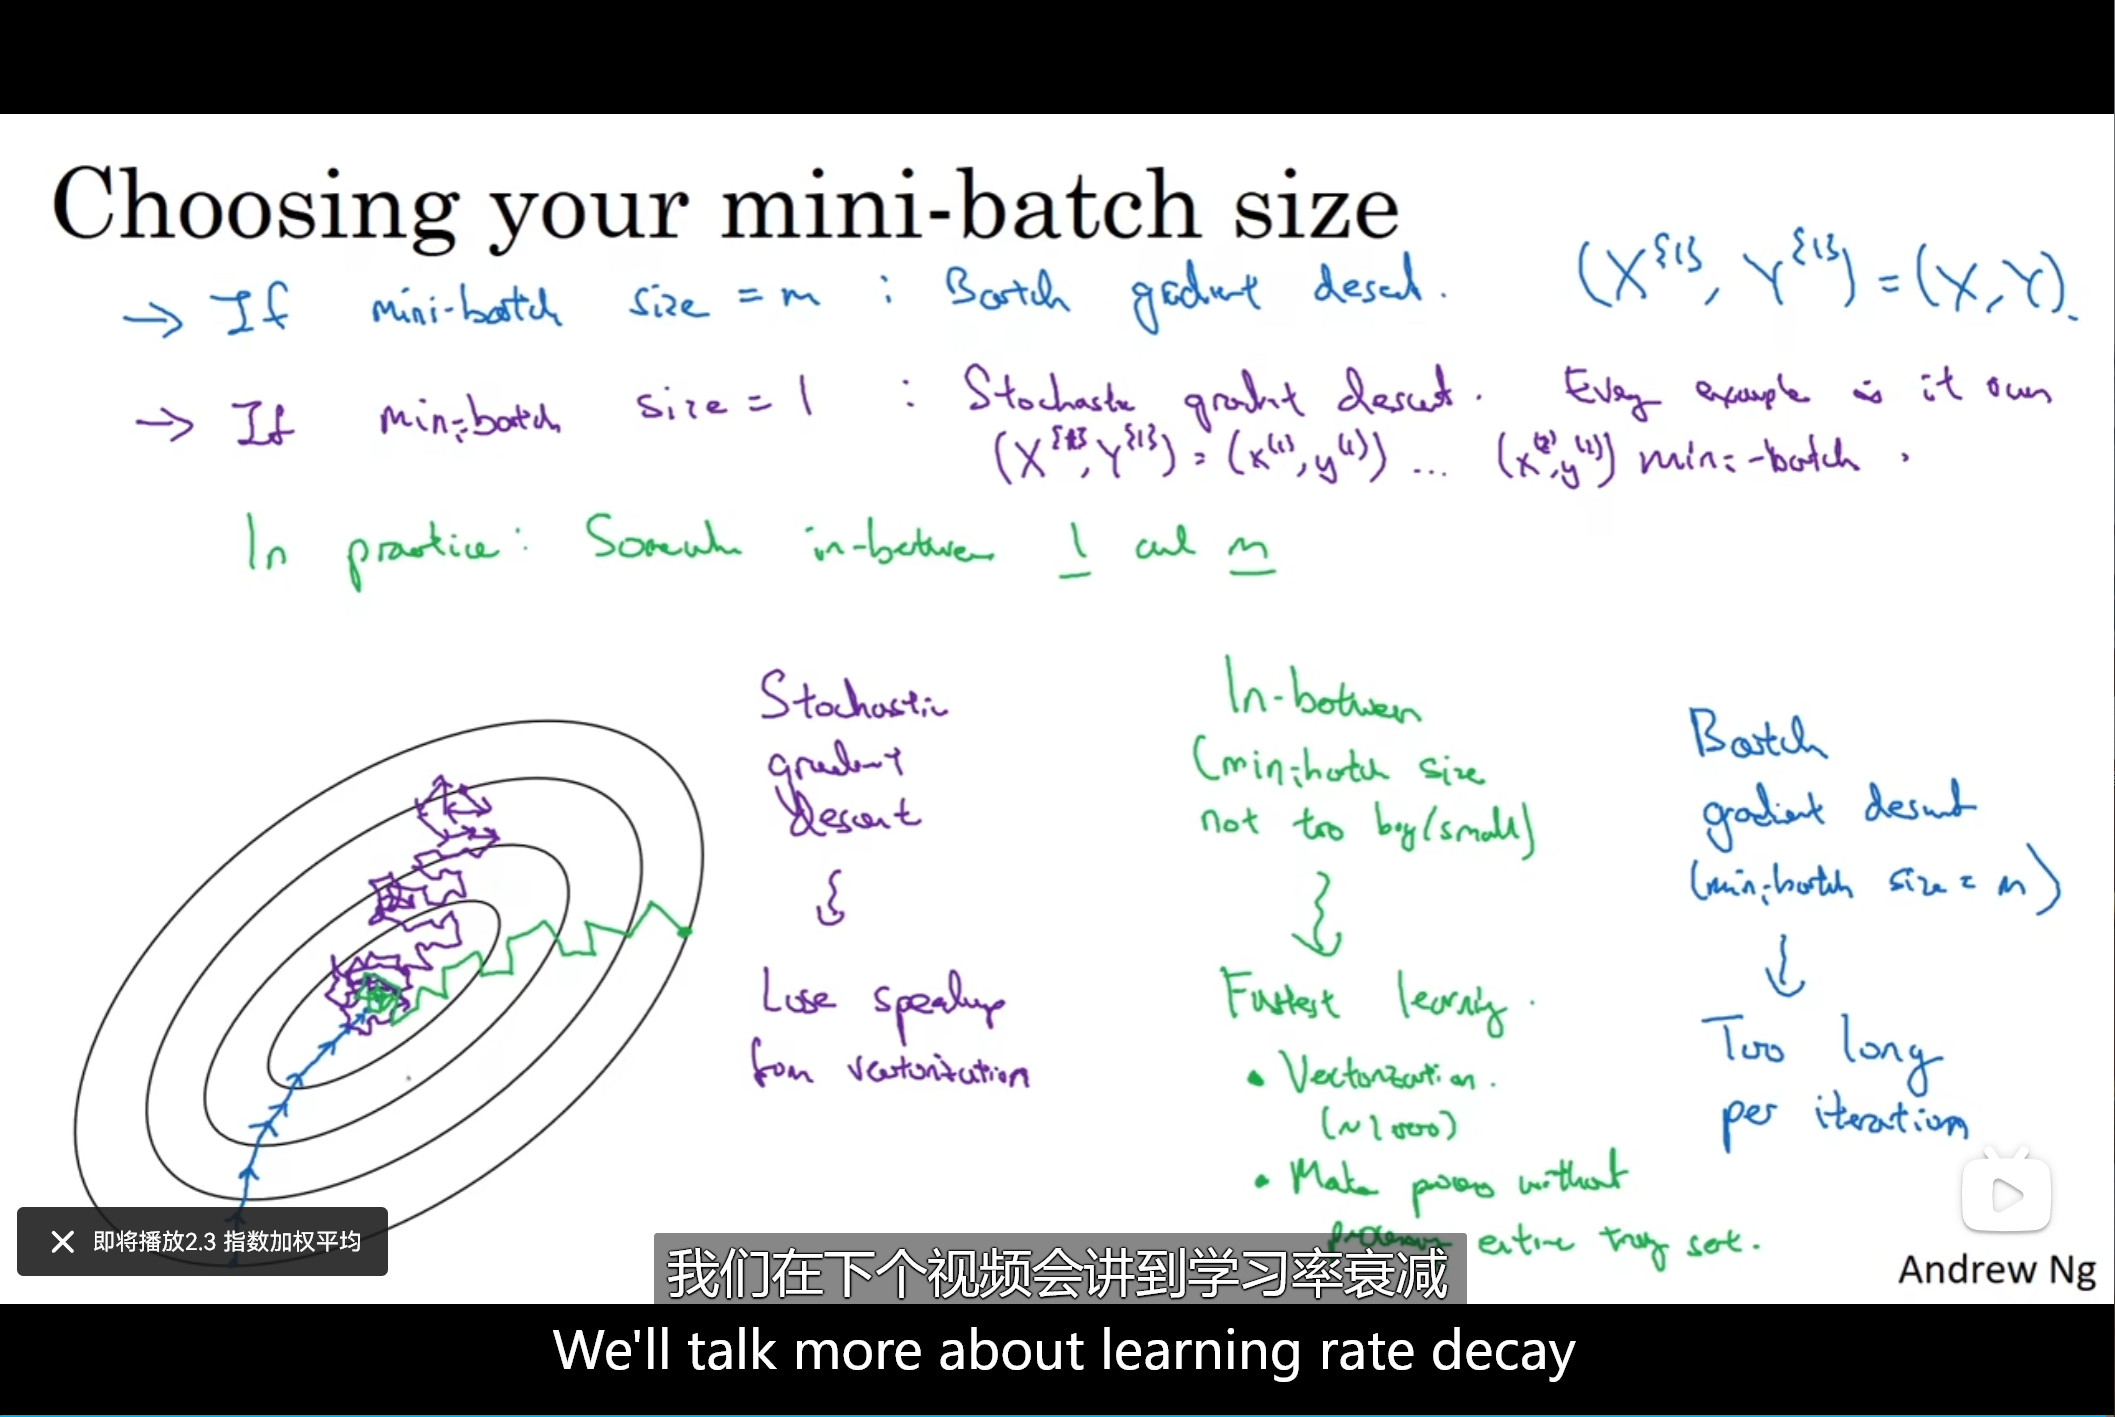 Choosing your mini-batch size
→ If mini-batch size = m : Batch gradient descent. (X^{1}, Y^{1}) = (X, Y).
→ If mini-batch size = 1 : Stochastic gradient descent. Every example is it own
(X^{1}, Y^{1}) = (x^(1), y^(1)) ... (x^(2), y^(2)) mini-batch.
In practice: Somewhere in-between 1 and m
Stochastic
gradient
descent
Lose speedup
from vectorization
In-between
(mini-batch size
not too big/small)
Fastest learning.
• Vectorization.
(~1000)
• Make progress without
processing entire training set.
Batch
gradient descent
(mini-batch size = m)
Too long
per iteration
× 即将播放2.3 指数加权平均
Andrew Ng
我们在下个视频会讲到学习率衰减
We'll talk more about learning rate decay